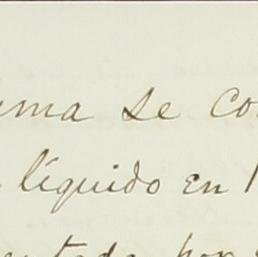 uma se co
líquido en 1
entada por